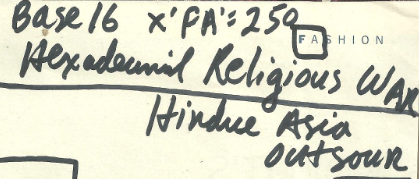 Base 16 X'FA'=250
FASHION
Hexadecimal Religious WAR
Hindue Asia
OUTSOUR